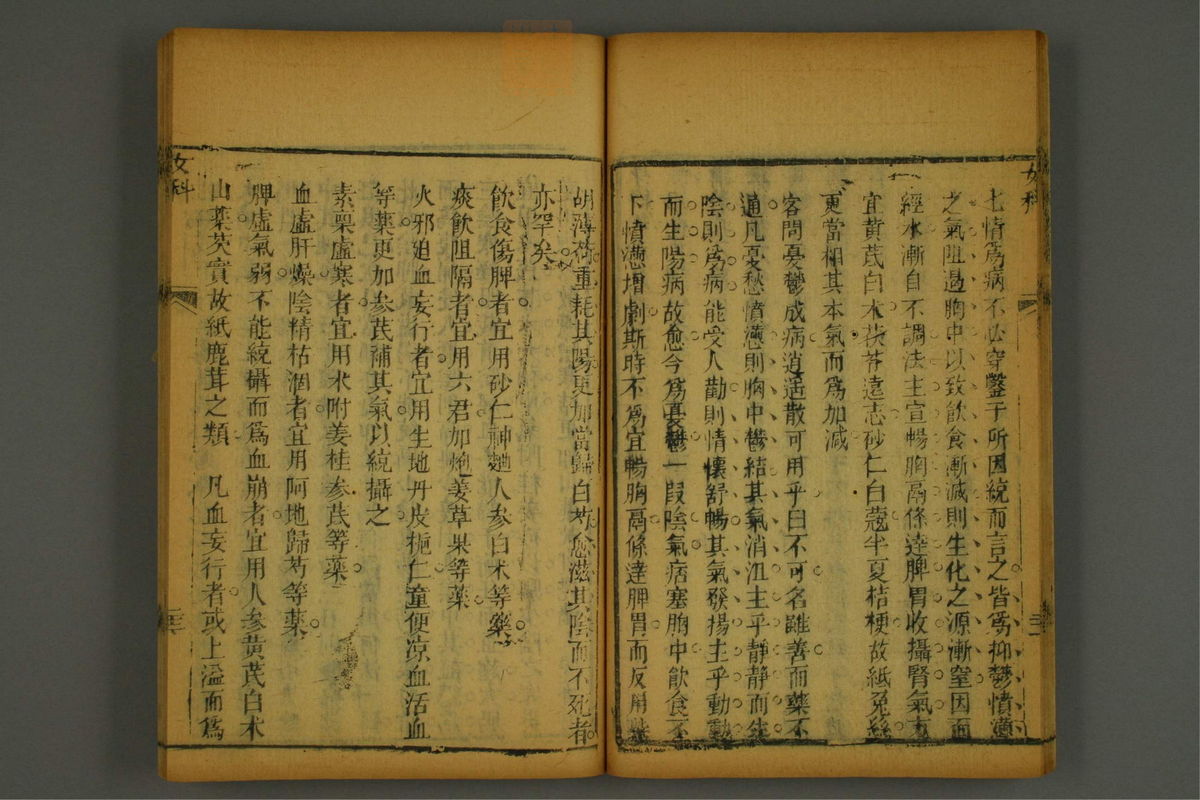 七情爲病不必穿鑿于所因統而言之皆爲抑鬱憤懣
之氣阻遏胸中以致飲食漸減則生化之源漸窒因而
經水漸自不調法主宣暢胸膈條達脾胃收攝腎氣方
宜黃芪白朮茯苓遠志砂仁白蔻半夏桔梗故紙兔絲
更當相其本氣而爲加減
客問憂鬱成病逍遥散可用乎曰不可名雖善而藥不
通凡憂愁憤懣則胸中鬱結其氣消沮主乎靜靜而生
陰則爲病能受人勸則情懷舒暢其氣發揚主乎動動
而生陽病故愈今爲憂鬱一叚陰氣痞塞胸中飲食不
下憤懣增劇斯時不爲宜暢胸膈條達脾胃而反用柴
胡薄荷重耗其陽更加當歸白芍愈滋其陰而不死者
亦罕矣
飲食傷脾者宜用砂仁神麯人参白朮等藥
痰飲阻隔者宜用六君加炮姜草果等藥
火邪廹血妄行者宜用生地丹皮梔仁童便凉血活血
等藥更加参芪補其氣以統攝之
素禀虛寒者宜用朮附姜桂参芪等藥
血虛肝燥陰精枯涸者宜用阿地歸芍等藥
脾虛氣弱不能統攝而爲血崩者宜用人参黄芪白朮
山藥芡實故紙鹿茸之類 凡血妄行者或上溢而爲
女科
女科